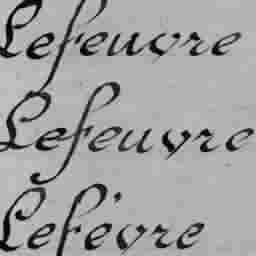 Lefeuvre
Lefeuvre
Lefévre